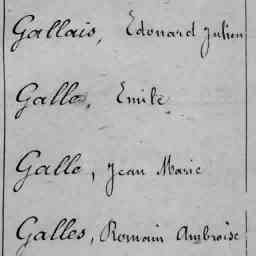 Gallais, Edouard Julien
Galle, Emile
Galle, Jean Marie
Galles, Romain Ambroise